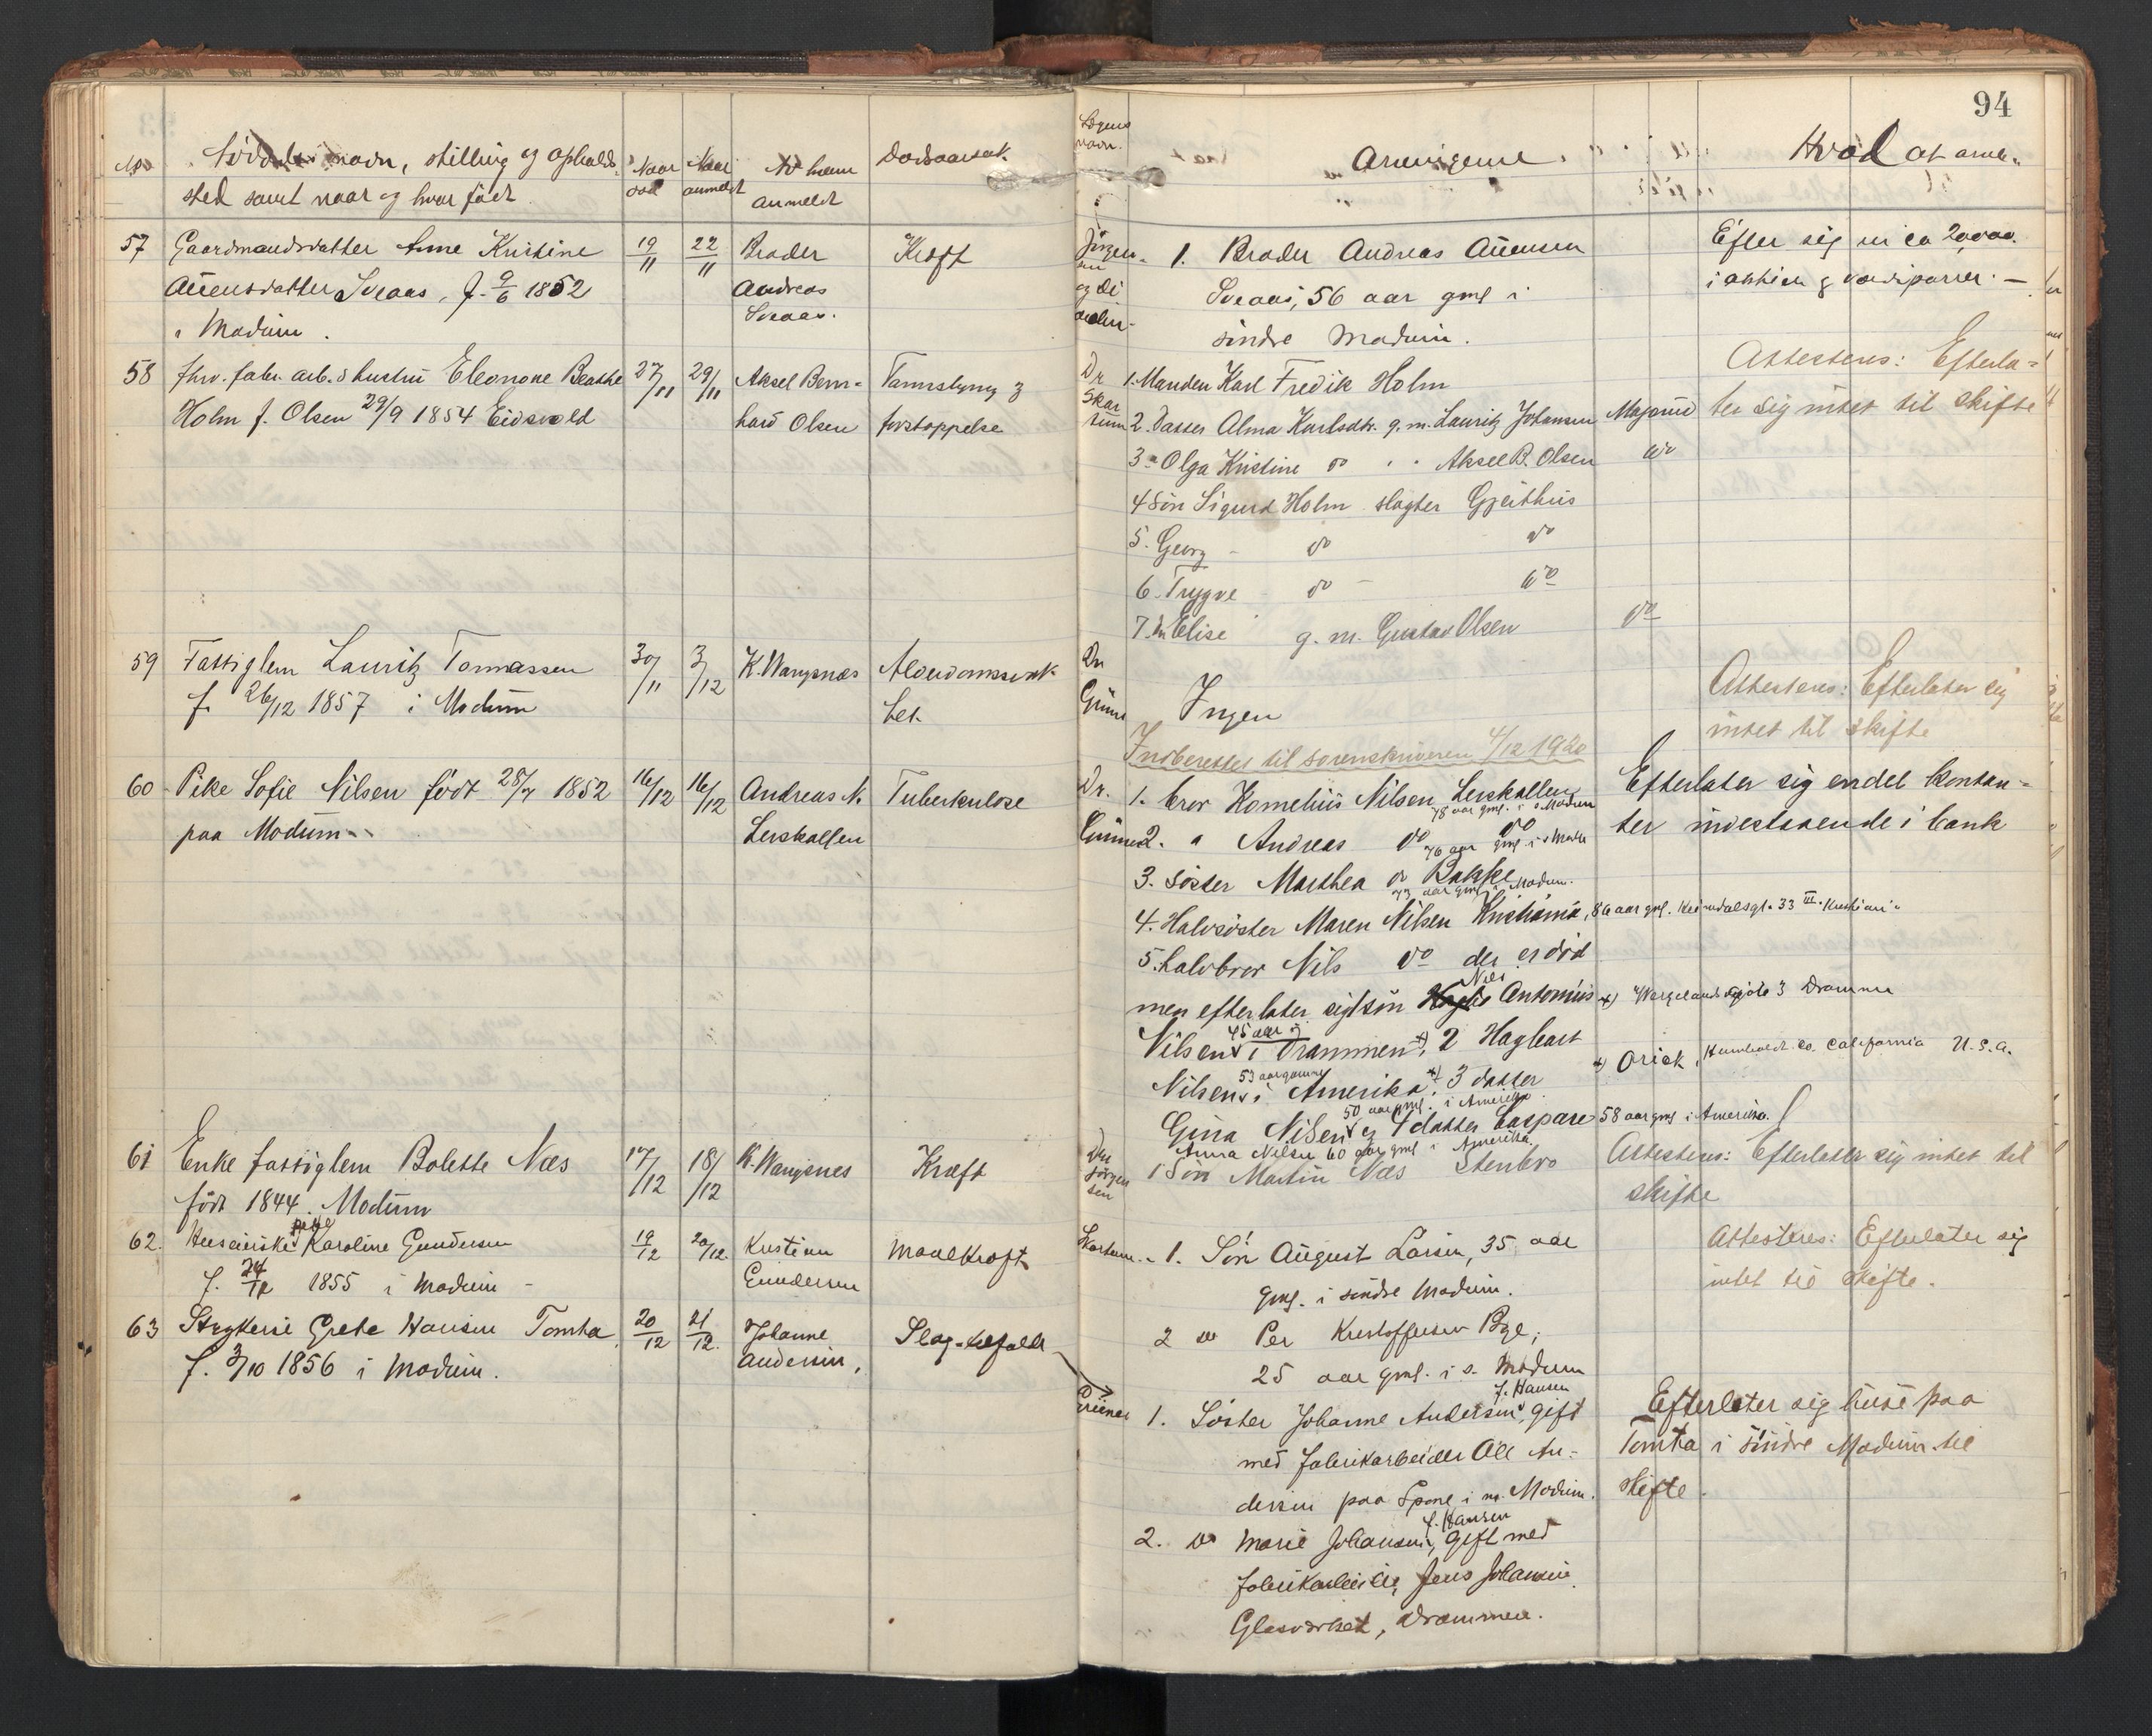 94
No
Afdødes navn, stilling og opholds-
sted samt naar og hvor födt
Naar död
Naar anmeldt
Af hvem anmeldt
Dödsaarsak.
Lægens navn.
Arvingerne.
Hvad at arve
57 Gaardmandsdatter Anne Kristine
Auensdatter Sveaas, f. 9/6 1852
i Modum.
19/11
22/11
Broder
Andreas
Sveaas.
Kræft
Jörgen-
1. Broder Andreas Auensen
Sveaas, 56 aar gml i
söndre Modum.
Efter sig er ca 20,000.
i aktier & verdipapirer. —
58 fhv. fabr. arb.s hustru Eleonore Beathe
Holm f. Olsen 29/9 1854 Eidsvold
27/11
29/11
Aksel Bern-
hard Olsen
Tarmslyng &
forstoppelse
Dr
Skar
tum
1. Manden Karl Fredik Holm
2. Datter Alma Karlsdtr. g. m. Lauritz Johansen Modum
3 " Olga Kristine do " " Aksel B. Olsen do
4 Sön Sigurd Holm slagter Gjeithus
5. Georg - do do
6. Trygve - do - do
7. Elise g. m. Gustav Olsen do
Attesteres: Efterla-
ter sig intet til skifte
59 Fattiglem Lauritz Tomassen
f. 26/12 1857 i Modum
30/11
3/12
K. Wangsnæs
Alderdomssvak-
het.
Dr
Grüner
Ingen
Attesteres: Efterlater sig
intet til skifte
Indberettet til sorenskriveren 4/12 1920
60 Pike Sofie Nilsen født 28/7 1852
paa Modum
16/12
16/12
Andreas N.
Lerskallen
Tuberkulose
Dr.
Grüner
1. bror Kornelius Nilsen Lerskallen
78 aar gml. i s. Modum
2. " Andreas do do
76 aar gml i s Modum
3. Söster Marthea do Bakke
73 aar gml i Modum.
4. Halvsöster Maren Nilsen Kristiania, 86 aar gml. 33 III Kristiania
5. halvbror Nils do der er död
men efterlater sig 1 sön Nils Antonius x) Wergelands gate 3 Drammen
Nilsen 45 aar g i Drammen x), 2 Hagbart
Nilsen 53 aar gammel i Amerika x) 3 datter x) Orick, Humboldt Co. California U.S.A.
Gina Nilsen 50 aar gml. i Amerika og 4 datter Caspare 58 aar gml i Amerika.
Anna Nilsen 60 aar gml i Amerika.
Efterlater sig endel kontan-
ter indestaaende i bank
61 Enke fattiglem Bolette Næs
født 1844. Modum
17/12
18/12
K. Wangsnes
Kræft
Dr
Jörgen
sen
1 Sön Martin Næs Stenbro
Attesteres: Efterlater sig intet til
skifte
62. Huseierske pike Karoline Gundersen
f. 24/12 1855 i Modum -
19/12
20/12.
Kristian
Gundersen
Mavekræft
Skartum.
1. Sön August Larsen, 35 aar
gml. i söndre Modum.
2 do Per Kristoffersen Bye,
25 aar gml. i s. Modum
Attesteres: Efterlater sig
intet til skifte.
63 Strykerske Grete Hansen Tomta
f. 3/10 1856 i Modum.
20/12
21/12.
Johanne
Andersen,
Slag-tilfælde
Grüner
1. Söster Johanne Andersen f. Hansen, gift
med fabrikarbeider Ole An-
dersen paa Spone i n. Modum.
2. do Marie Johansen f. Hansen, gift med
fabrikarbeider Jens Johansen
Glasværket, Drammen.
Efterlater sig huse paa
Tomta i söndre Modum til
skifte.